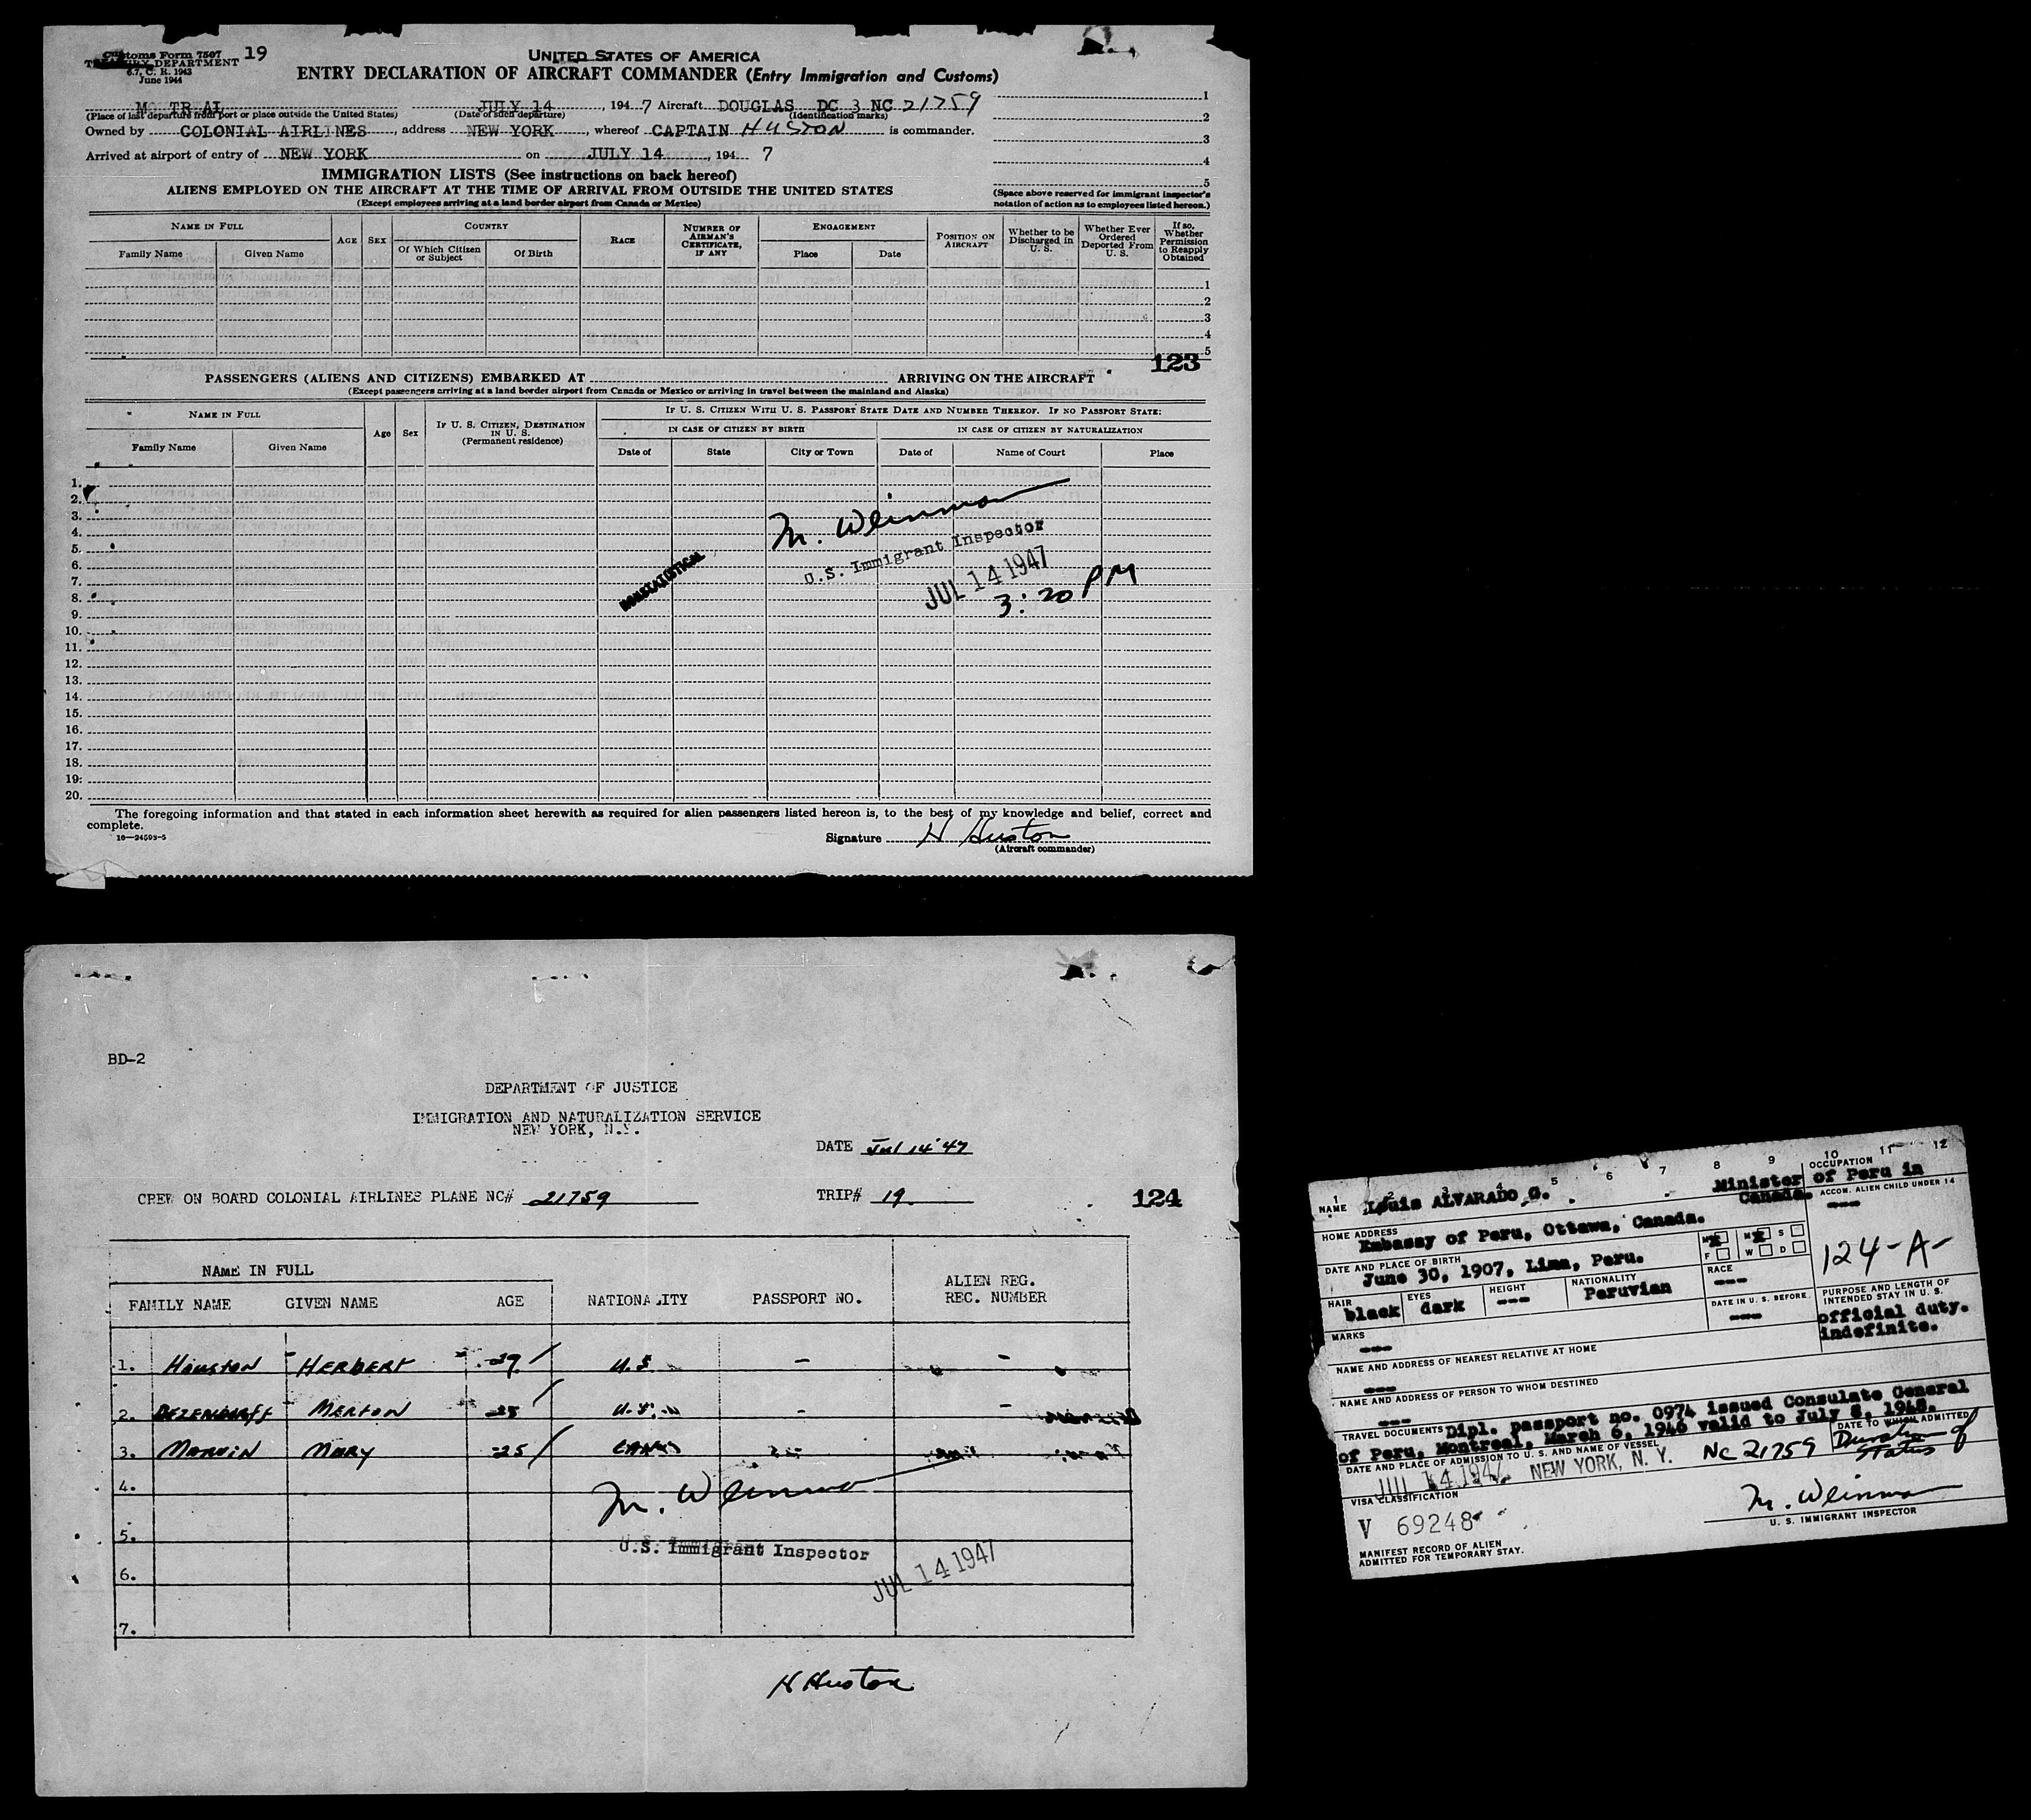 Customs Form 7507
TREASURY DEPARTMENT
6.7, C. R. 1943
June 1944
19
UNITED STATES OF AMERICA
ENTRY DECLARATION OF AIRCRAFT COMMANDER (Entry Immigration and Customs)
M TR AL , JULY 14 , 194 7 Aircraft DOUGLAS DC 3 NC 21759
(Place of last departure from port or place outside the United States) (Date of such departure) (Identification marks)
Owned by COLONIAL AIRLINES , address NEW YORK , whereof CAPTAIN HUSTON is commander.
Arrived at airport of entry of NEW YORK on JULY 14 , 194 7
1
2
3
4
5
(Space above reserved for immigrant inspector's
notation of action as to employees listed hereon.)
IMMIGRATION LISTS (See instructions on back hereof)
ALIENS EMPLOYED ON THE AIRCRAFT AT THE TIME OF ARRIVAL FROM OUTSIDE THE UNITED STATES
(Except employees arriving at a land border airport from Canada or Mexico)
NAME IN FULL
Family Name Given Name
AGE SEX
COUNTRY
Of Which Citizen or Subject Of Birth
RACE
NUMBER OF AIRMAN'S CERTIFICATE, IF ANY
ENGAGEMENT
Place Date
POSITION ON AIRCRAFT
Whether to be Discharged in U. S.
Whether Ever Ordered Deported From U. S.
If so, Whether Permission to Reapply Obtained
1
2
3
4
5
123
PASSENGERS (ALIENS AND CITIZENS) EMBARKED AT ARRIVING ON THE AIRCRAFT
(Except passengers arriving at a land border airport from Canada or Mexico or arriving in travel between the mainland and Alaska)
NAME IN FULL
Family Name Given Name
Age Sex
IF U. S. CITIZEN, DESTINATION IN U. S.
(Permanent residence)
IF U. S. CITIZEN WITH U. S. PASSPORT STATE DATE AND NUMBER THEREOF. IF NO PASSPORT STATE:
IN CASE OF CITIZEN BY BIRTH IN CASE OF CITIZEN BY NATURALIZATION
Date of State City or Town Date of Name of Court Place
1.
2.
3.
4.
5.
6.
7.
8.
9.
10.
11.
12.
13.
14.
15.
16.
17.
18.
19.
20.
M. Weinman
U.S. Immigrant Inspector
JUL 14 1947
3:20 PM
NONSTATISTICAL
The foregoing information and that stated in each information sheet herewith as required for alien passengers listed hereon is, to the best of my knowledge and belief, correct and
complete.
16—24593-5
Signature H Huston
(Aircraft commander)
BD-2
DEPARTMENT OF JUSTICE
IMMIGRATION AND NATURALIZATION SERVICE
NEW YORK, N.Y.
DATE Jul 14 '47
CREW ON BOARD COLONIAL AIRLINES PLANE NC# 21759 TRIP# 19
124
NAME IN FULL
FAMILY NAME GIVEN NAME AGE NATIONALITY PASSPORT NO. ALIEN REG. REC. NUMBER
1. HOUSTON HERBERT 39 U.S. - -
2. DEZENDORFF MERTON U.S. - -
3. MARVIN MARY 25 CAN
4.
5.
6.
7.
M. Weinman
U.S. Immigrant Inspector
JUL 14 1947
H Huston
1 2 3 4 5 6 7 8 9 10 11 12
NAME Louis ALVARADO G.
OCCUPATION Minister of Peru in Canada.
HOME ADDRESS Embassy of Peru, Ottawa, Canada.
ACCOM. ALIEN CHILD UNDER 14 ---
DATE AND PLACE OF BIRTH June 30, 1907, Lima, Peru.
M X F M X S W D
124-A-
HAIR black EYES dark HEIGHT --- NATIONALITY Peruvian RACE ---
MARKS ---
DATE IN U. S. BEFORE ---
PURPOSE AND LENGTH OF INTENDED STAY IN U. S.
official duty.
indefinite.
NAME AND ADDRESS OF NEAREST RELATIVE AT HOME
---
NAME AND ADDRESS OF PERSON TO WHOM DESTINED
---
TRAVEL DOCUMENTS Dipl. passport no. 0974 issued Consulate General
of Peru, Montreal, March 6, 1946 valid to July 8, 1948.
DATE AND PLACE OF ADMISSION TO U. S. AND NAME OF VESSEL
JUL 14 1947 NEW YORK, N. Y. NC 21759
DATE TO WHICH ADMITTED
Duration of
status
VISA CLASSIFICATION
V 69248
M. Weinman
U. S. IMMIGRANT INSPECTOR
MANIFEST RECORD OF ALIEN
ADMITTED FOR TEMPORARY STAY.